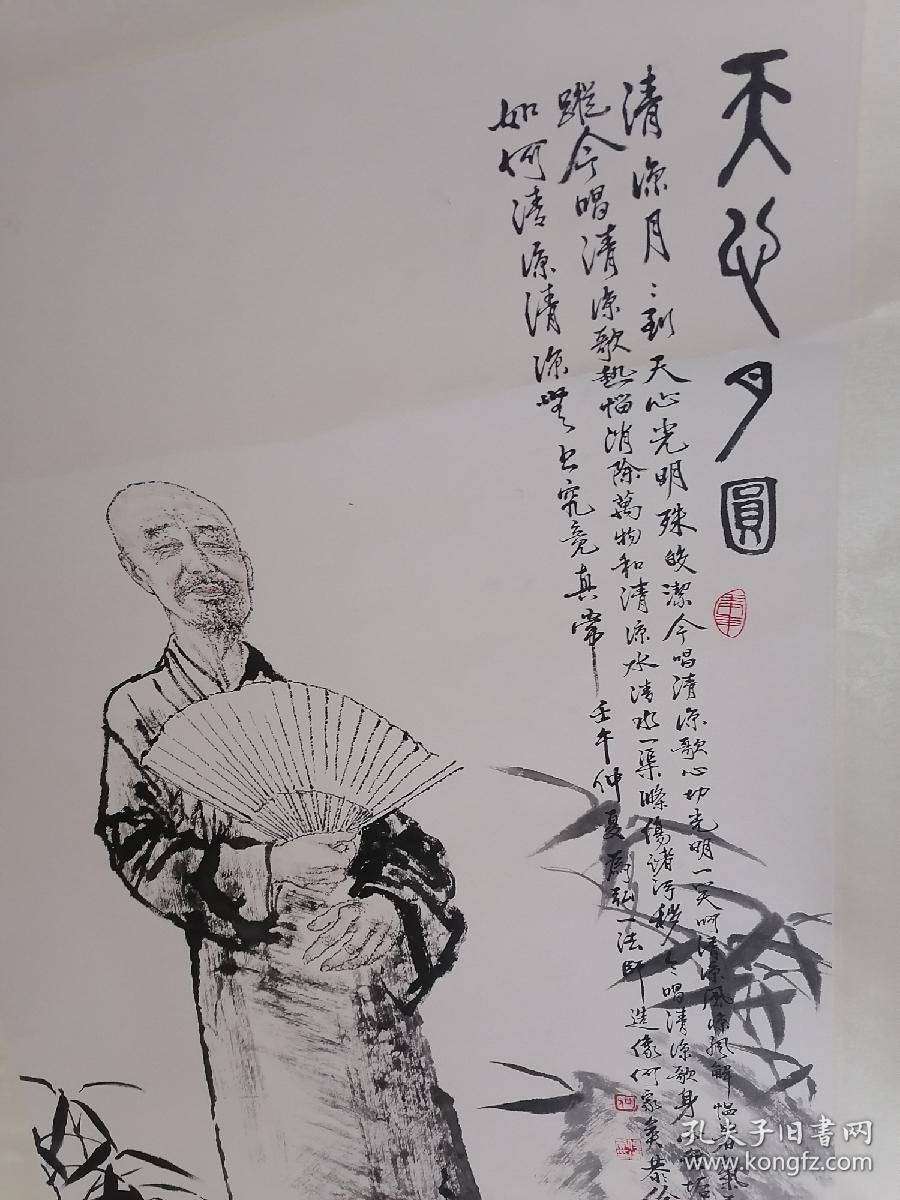 天心月圓
清涼月月到天心光明殊皎潔今唱清涼歌心切光明一笑呵清涼風涼風解愠暑氣
蹤今唱清涼歌熱惱消除萬物和清涼水清水一渠滌傷諸污穢今唱清涼歌身
如何清涼清涼無上究竟真常 壬午仲夏爲弘一法師造像何家英恭繪
孔夫子旧书网
www.kongfz.com